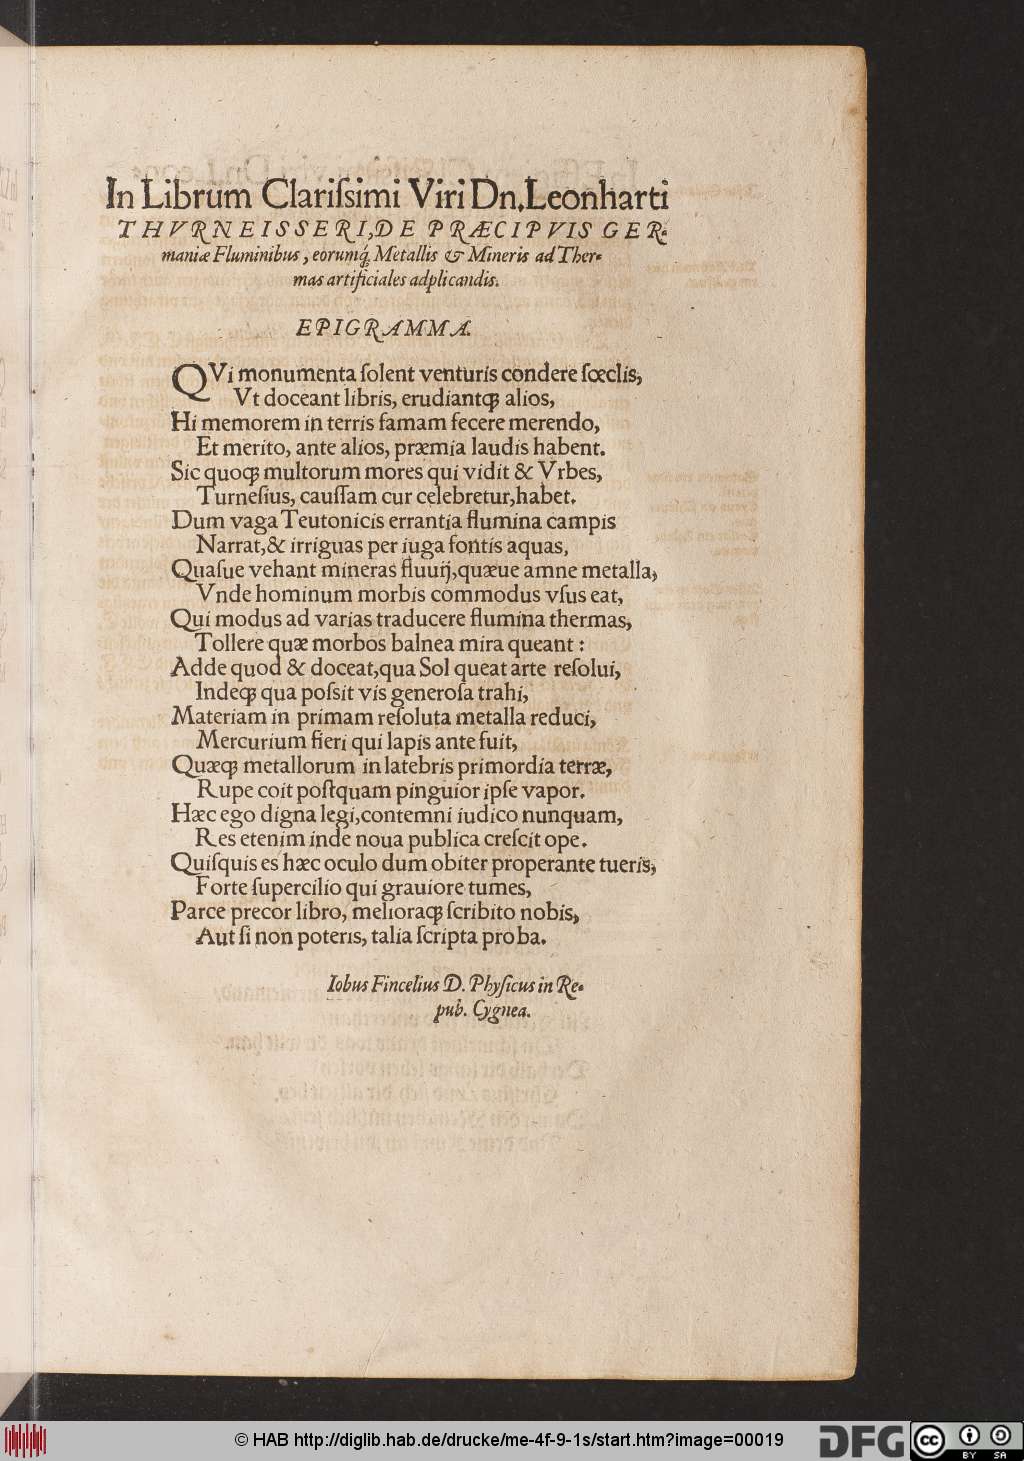 In Librum Clariſsimi Viri Dn. Leonharti
THVRNEISSERI, DE PRÆCIPVIS GER-
maniæ Fluminibus, eorumq́; Metallis & Mineris ad Ther-
mas artificiales adplicandis.
EPIGRAMMA.
QVi monumenta ſolent venturis condere ſœclis,
Vt doceant libris, erudiantq; alios,
Hi memorem in terris famam fecere merendo,
Et merito, ante alios, præmia laudis habent.
Sic quoq; multorum mores qui vidit & Vrbes,
Turneſius, cauſſam cur celebretur, habet.
Dum vaga Teutonicis errantia flumina campis
Narrat, & irriguas per iuga fontis aquas,
Quaſue vehant mineras fluuij, quæue amne metalla,
Vnde hominum morbis commodus vſus eat,
Qui modus ad varias traducere flumina thermas,
Tollere quæ morbos balnea mira queant:
Adde quod & doceat, qua Sol queat arte reſolui,
Indeq; qua poſsit vis generoſa trahi,
Materiam in primam reſoluta metalla reduci,
Mercurium fieri qui lapis ante fuit,
Quæq; metallorum in latebris primordia terræ,
Rupe coit poſtquam pinguior ipſe vapor.
Hæc ego digna legi, contemni iudico nunquam,
Res etenim inde noua publica creſcit ope.
Quiſquis es hæc oculo dum obiter properante tueris,
Forte ſupercilio qui grauiore tumes,
Parce precor libro, melioraq; ſcribito nobis,
Aut ſi non poteris, talia ſcripta proba.
Iobus Fincelius D. Phyſicus in Re-
pub. Cygnea.
© HAB http://diglib.hab.de/drucke/me-4f-9-1s/start.htm?image=00019
DFG
cc BY SA